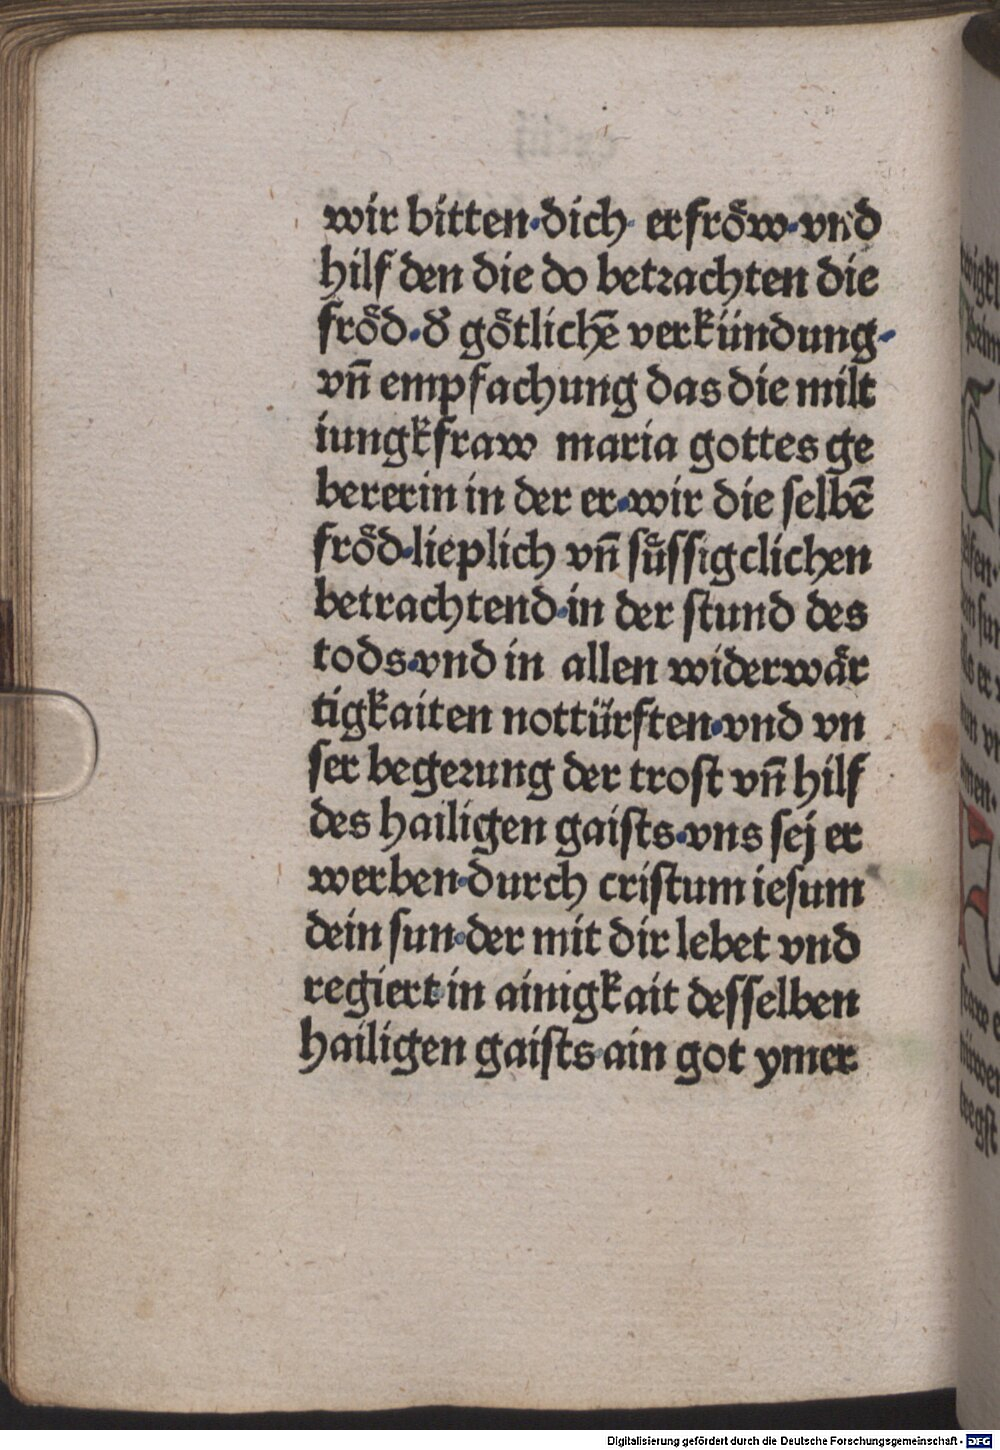 wir bitten·dich· erfröw·vnd
hilf den die do betrachten die
fröd·d̄ götlichē verkündung·
vn̄ empfachung das die milt
iungkfraw maria gottes ge
bererin in der er·wir die selbē
fröd·lieplich vn̄ sůssigclichen
betrachtend·in der stund des
tods·vnd in allen widerwär
tigkaiten nottürften·vnd vn
ser begerung der trost vn̄ hilf
des hailigen gaists·vns sej er
werben·durch cristum iesum
dein sun·der mit dir lebet vnd
regiert·in ainigkait desselben
hailigen gaists·ain got ymer
Digitalisierung gefördert durch die Deutsche Forschungsgemeinschaft - DFG